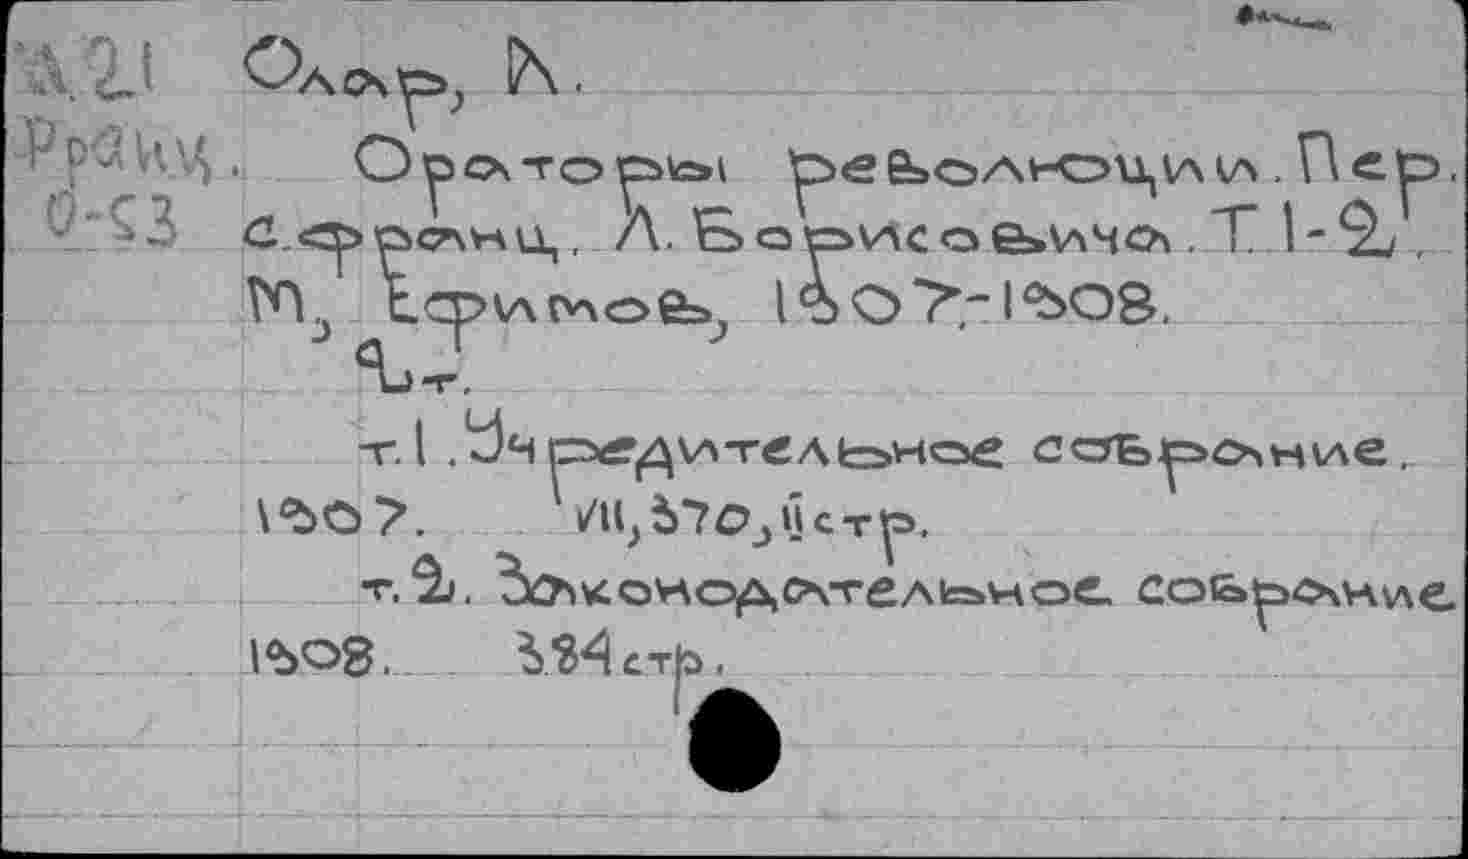 А.21 Олар, А.
Франц. Ораторы революции. Пер.
О-53 с франц. Л. Борисовича. Т 1-2,
М, Ефимов, 1907-1908.
2 т.
т. 1. Учредительное собрание.
1907. VII, 370, II стр.
т. 2. Законодательное собрание
1908. 384 стр.